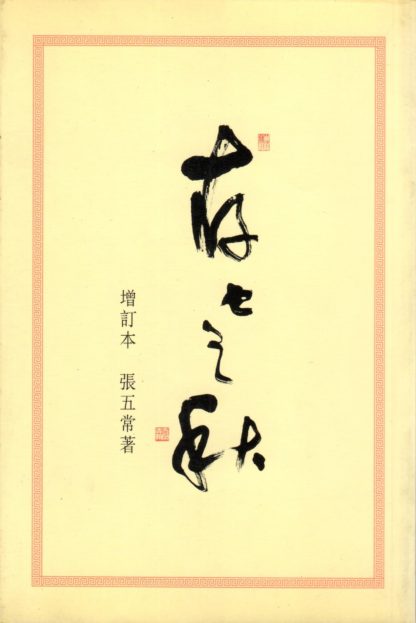 存亡之秋
增訂本 張五常著